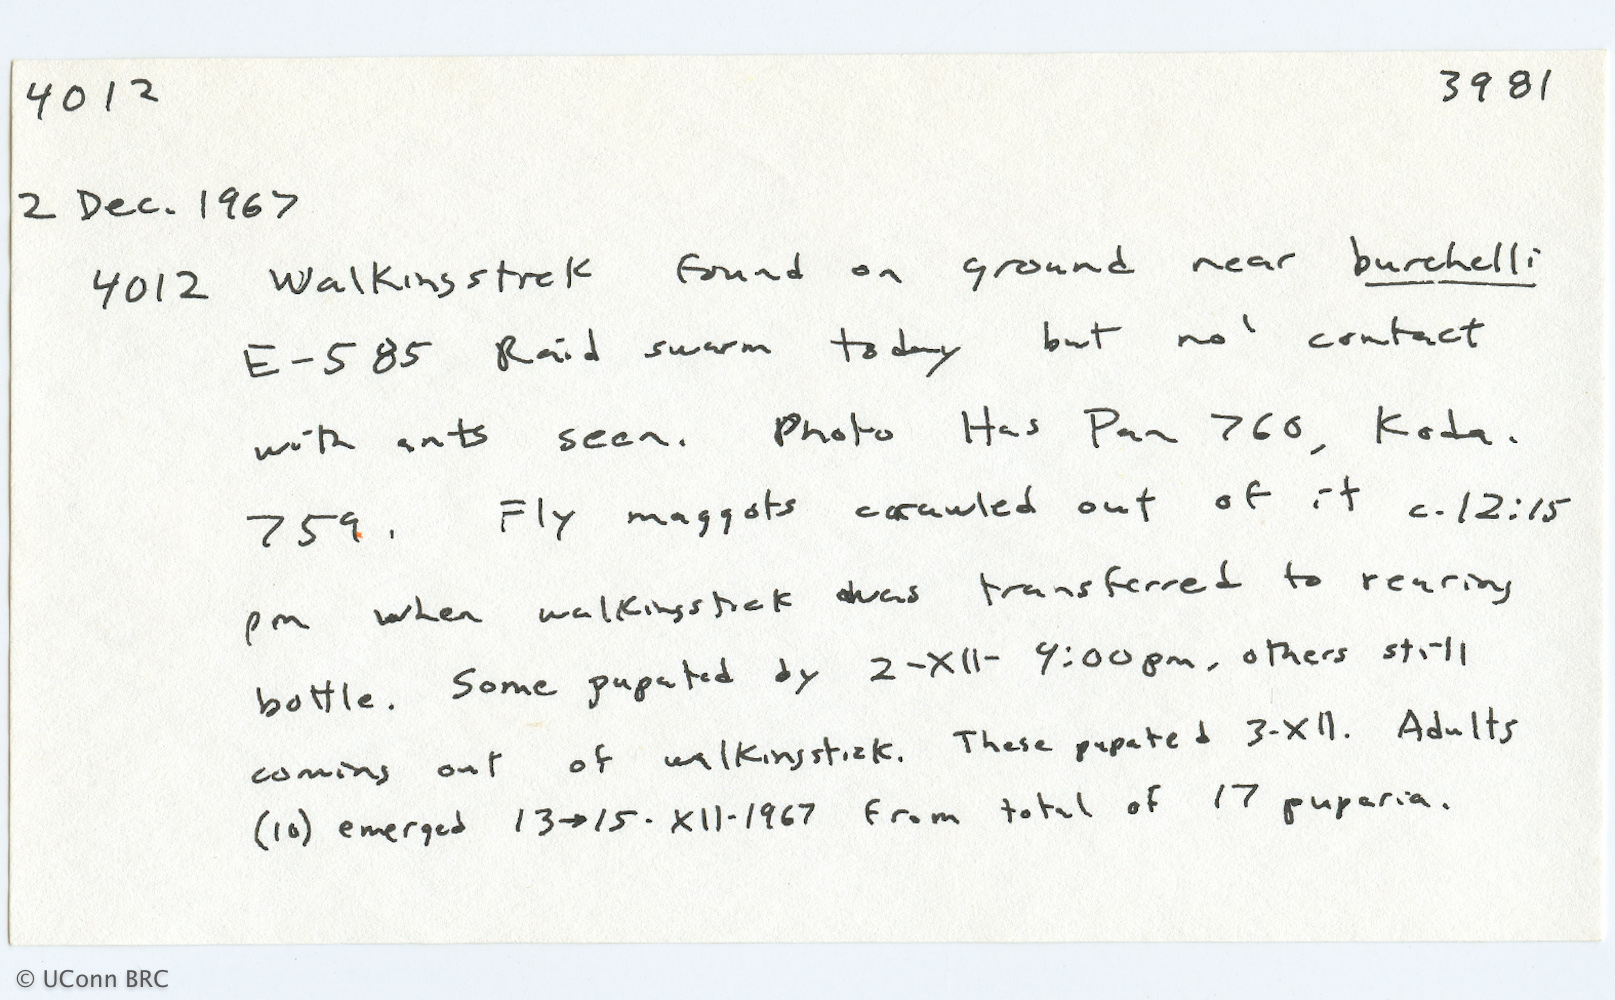 4012 3981
2 Dec. 1967
4012 Walkingstick found on ground near burchelli
E-585 Raid swarm today but no contact
with ants seen. Photo Has Pan 760, Koda.
759. Fly maggots crawled out of it c. 12:15
pm when walkingstick was transferred to rearing
bottle. Some pupated by 2-XII- 9:00pm, others still
coming out of walkingstick. These pupated 3-XII. Adults
(10) emerged 13→15-XII-1967 from total of 17 puparia.
© UConn BRC